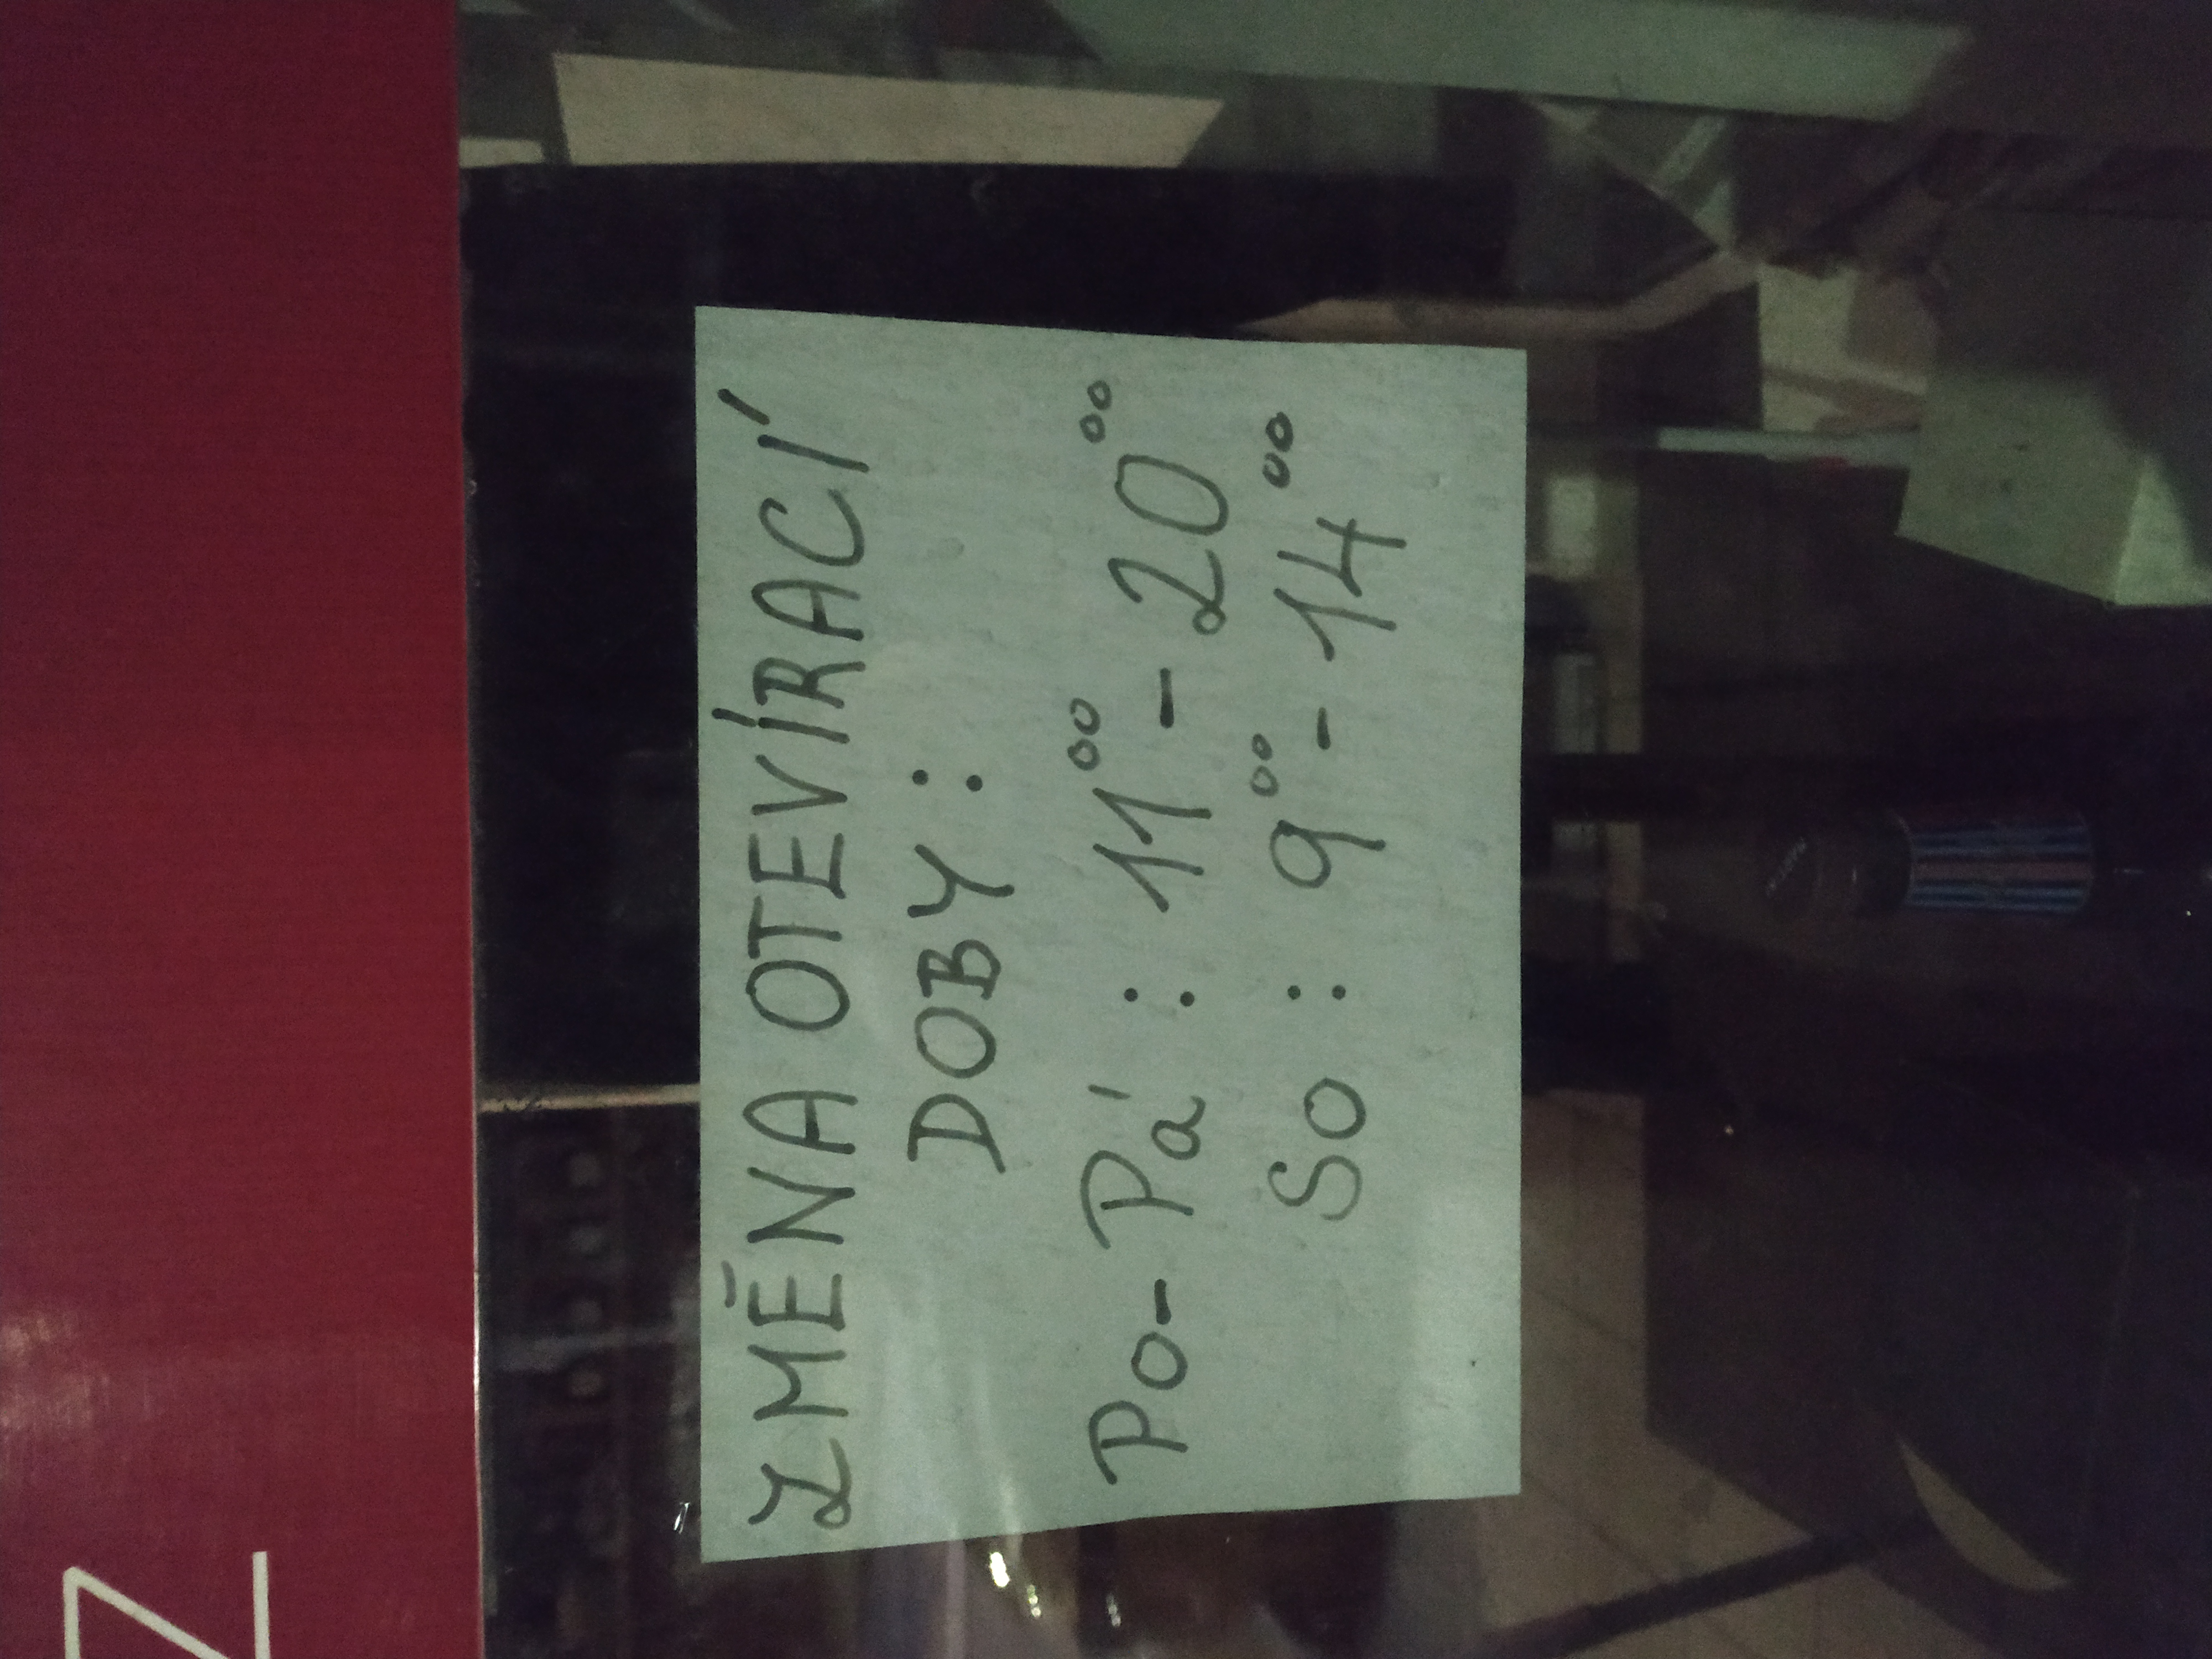 ZMĚNA OTEVÍRACÍ
DOBY:
Po-Pá: 11⁰⁰-20⁰⁰
So: 9⁰⁰-14⁰⁰